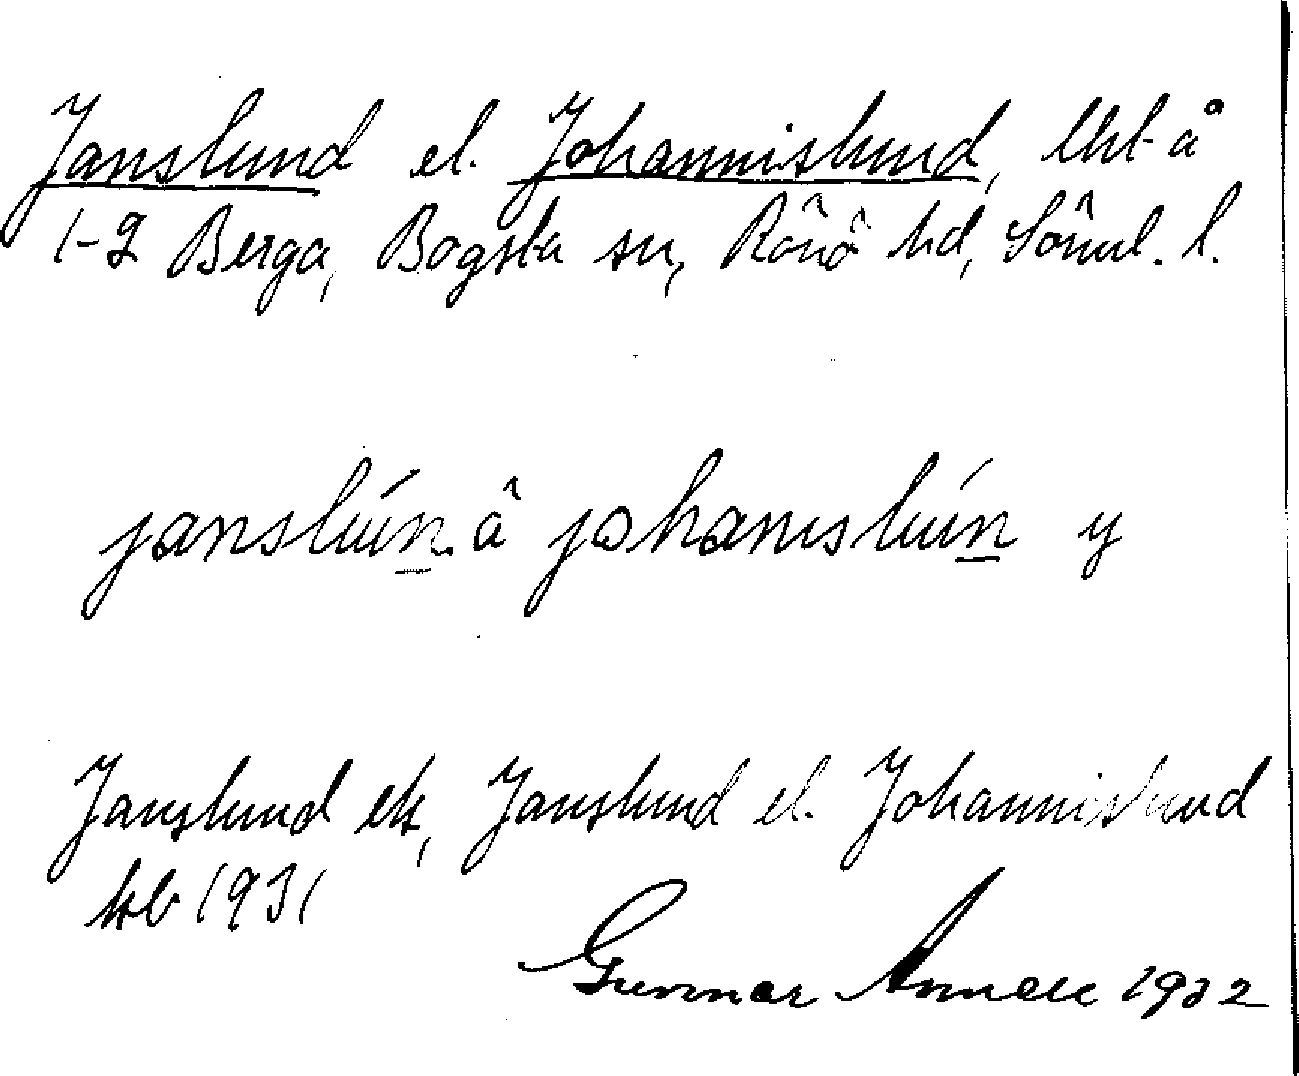 Janslund el. Johannislund, lht å
1-2 Berga, Bogsta sn, Rönö hd, Sörml. l.
janslún å johanislún y
Janslund ek, Janslund el. Johannislund
kb 1931
Gunnar Annell 1932